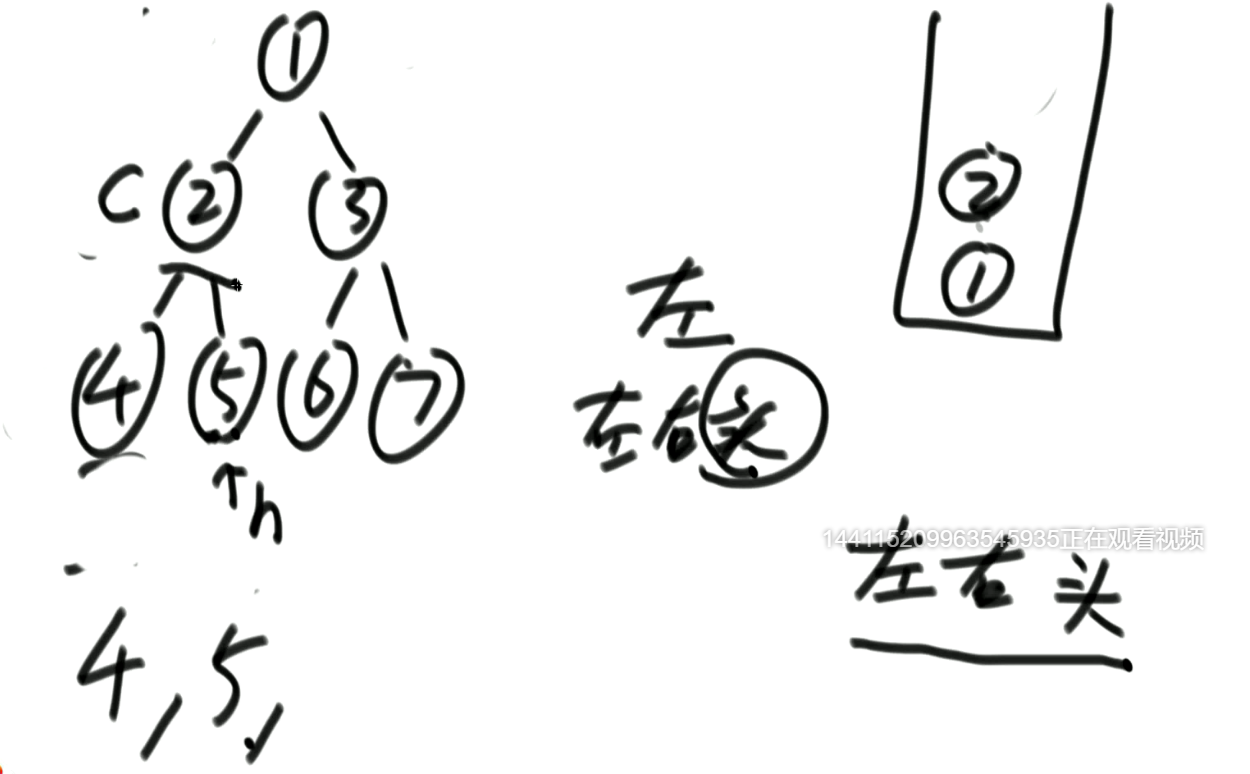 1
C 2 3
4 5 6 7
h
4, 5,
2
1
左
左右头
左右头
144115209963545935正在观看视频